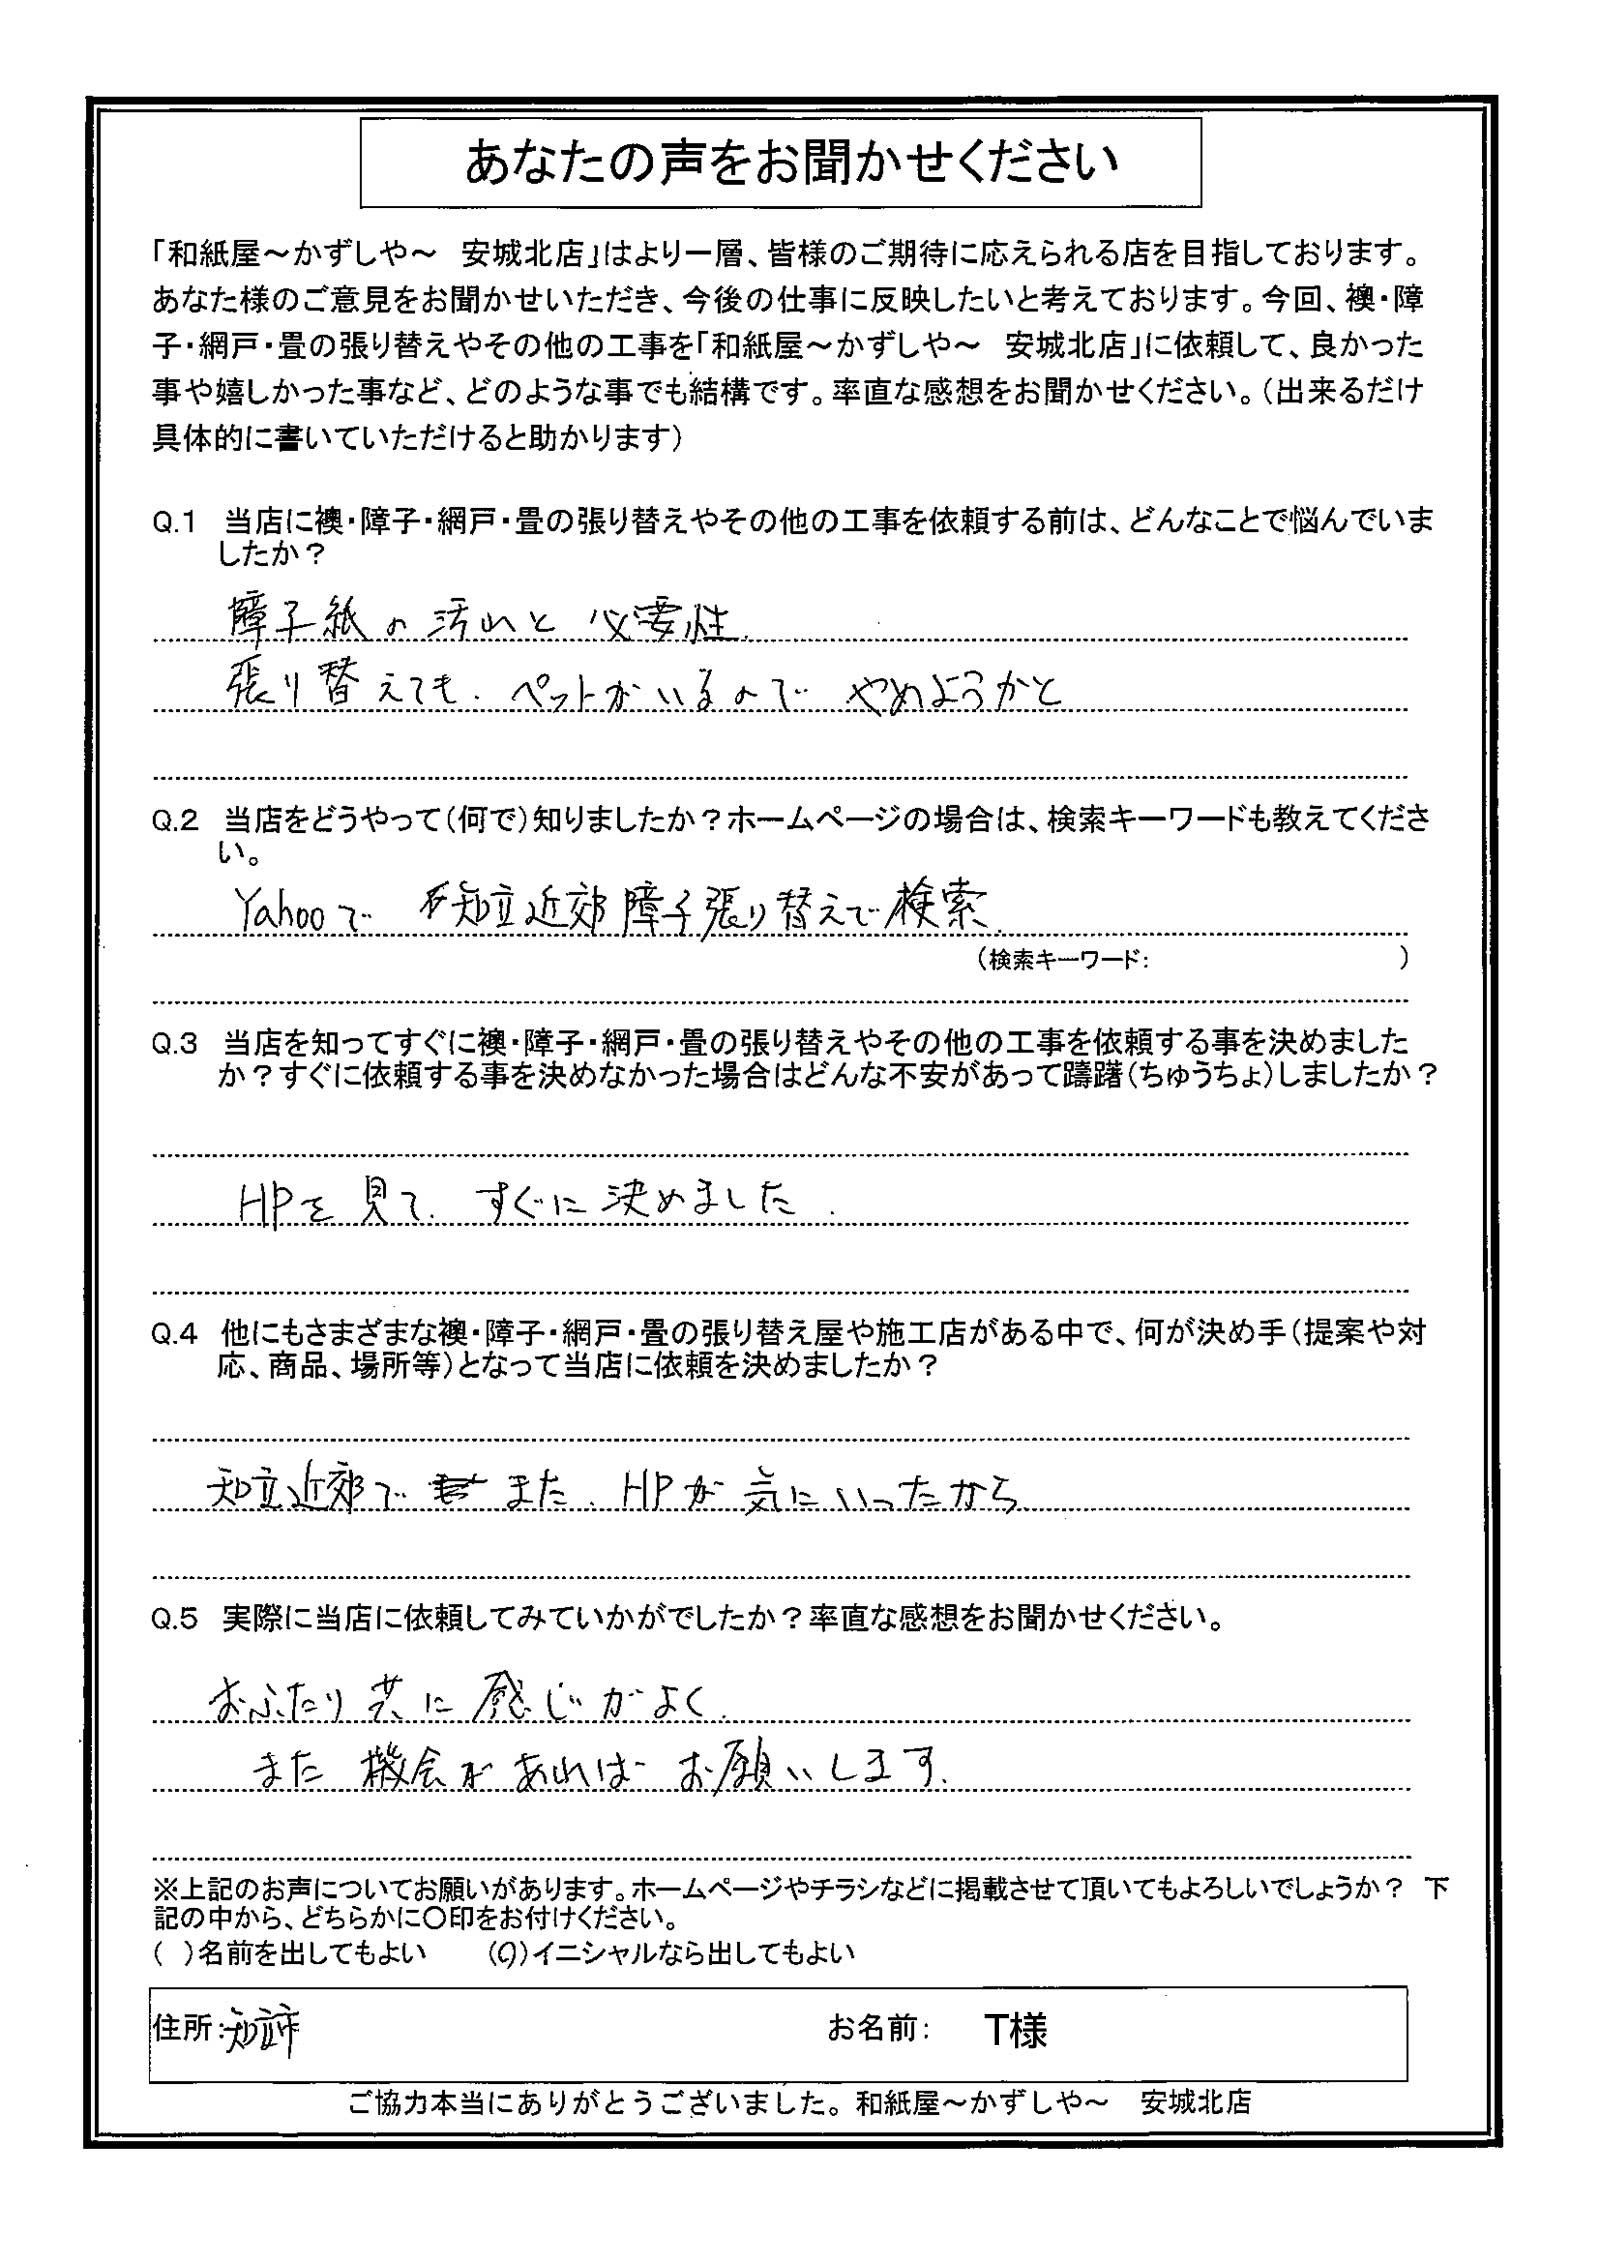 あなたの声をお聞かせください
「和紙屋～かずしや～　安城北店」はより一層、皆様のご期待に応えられる店を目指しております。
あなた様のご意見をお聞かせいただき、今後の仕事に反映したいと考えております。今回、襖・障
子・網戸・畳の張り替えやその他の工事を「和紙屋～かずしや～　安城北店」に依頼して、良かった
事や嬉しかった事など、どのような事でも結構です。率直な感想をお聞かせください。（出来るだけ
具体的に書いていただけると助かります）
Q.1　当店に襖・障子・網戸・畳の張り替えやその他の工事を依頼する前は、どんなことで悩んでいま
したか？
障子紙の汚れと必要性.
張り替えても、ペットがいるので やめようかと
Q.2　当店をどうやって（何で）知りましたか？ホームページの場合は、検索キーワードも教えてくださ
い。
Yahooで 知立近郊障子張り替えで検索.
（検索キーワード：　　　　　　）
Q.3　当店を知ってすぐに襖・障子・網戸・畳の張り替えやその他の工事を依頼する事を決めました
か？すぐに依頼する事を決めなかった場合はどんな不安があって躊躇（ちゅうちょ）しましたか？
HPを見て、すぐに決めました.
Q.4　他にもさまざまな襖・障子・網戸・畳の張り替え屋や施工店がある中で、何が決め手（提案や対
応、商品、場所等）となって当店に依頼を決めましたか？
知立近郊で また、HPが気にいったから
Q.5　実際に当店に依頼してみていかがでしたか？率直な感想をお聞かせください。
おふたり共に感じがよく、
また機会があればお願いします.
※上記のお声についてお願いがあります。ホームページやチラシなどに掲載させて頂いてもよろしいでしょうか？　下
記の中から、どちらかに〇印をお付けください。
（　）名前を出してもよい　　（〇）イニシャルなら出してもよい
住所：知立市　　お名前：　T様
ご協力本当にありがとうございました。和紙屋～かずしや～　安城北店